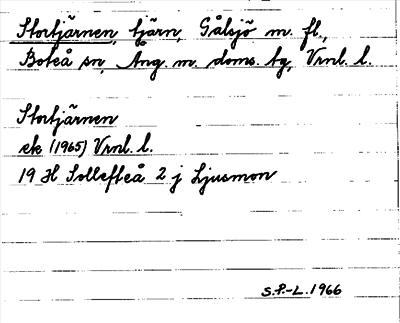 Stortjärnen, tjärn, Gålsjö m. fl.,
Boteå sn, Ång. m. doms. tg, Vrnl. l.
Stortjärnen
ek (1965) Vrnl. l.
19 H Sollefteå 2 j Ljusmon
S.P.-L. 1966